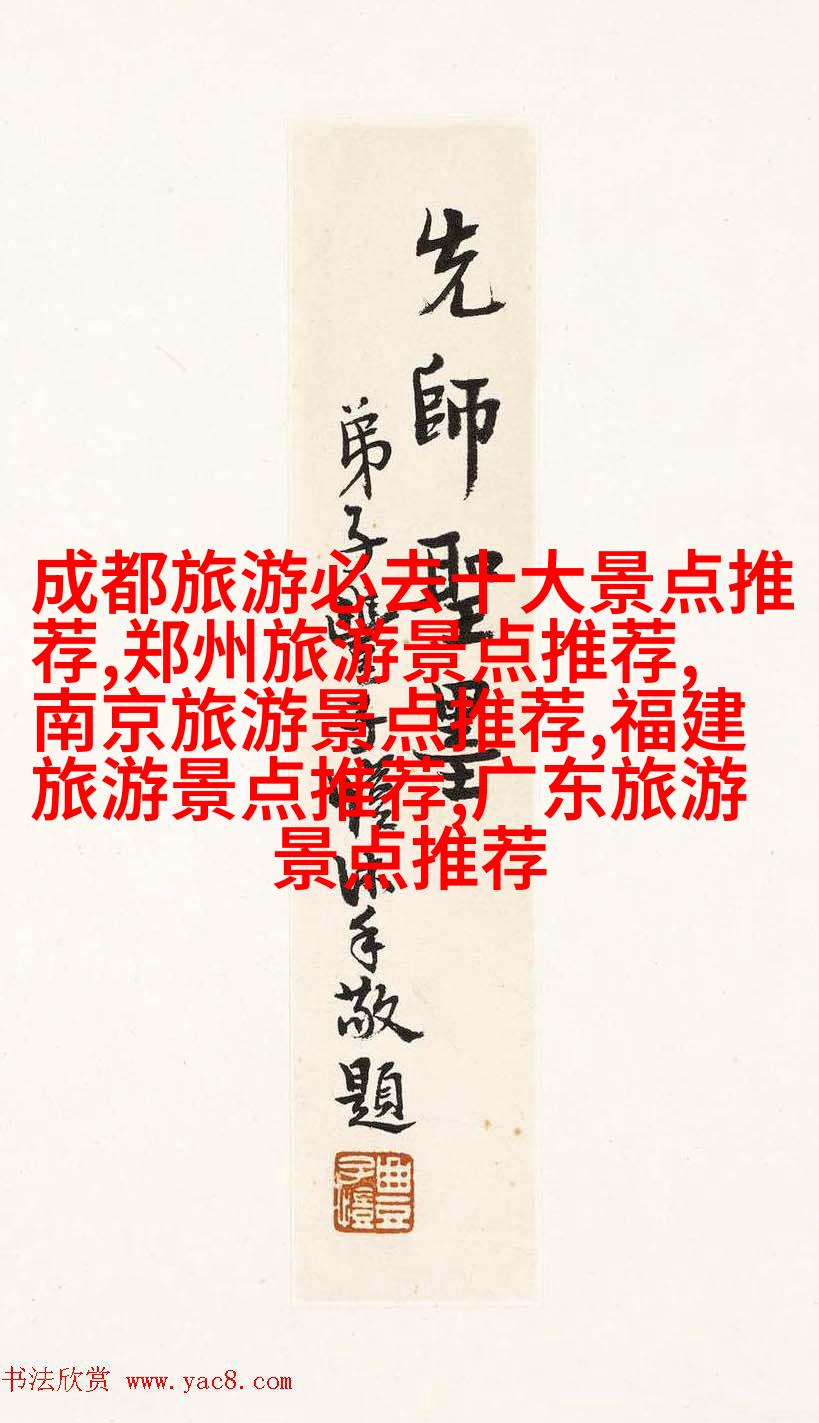 先師聖墨
弟子豐子愷沐手敬題
豐子愷
成都旅游必去十大景点推
荐,郑州旅游景点推荐,
南京旅游景点推荐,福建
旅游景点推荐,广东旅游
景点推荐
书法欣赏 www.yac8.com